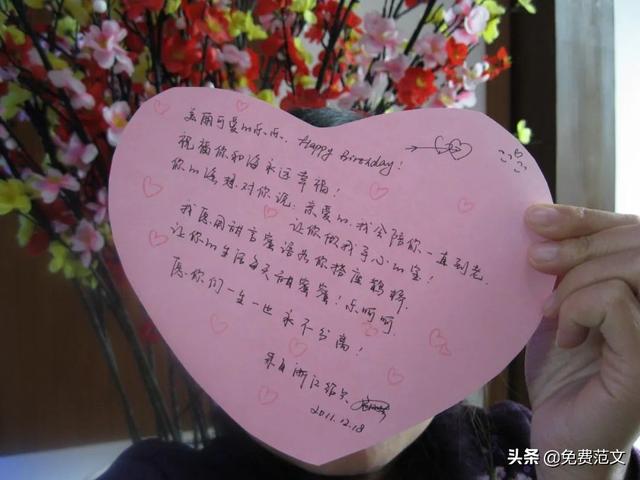 美丽可爱的乐乐、Happy Birthday!
祝福你和海永远幸福!
你的海想对你说:亲爱的,我会陪你一直到老.
让你做我手心的宝!
我愿用甜言蜜语为你搭座鹊桥.
让你的生活每天甜蜜蜜!乐呵呵.
愿你们一生一世永不分离!
来自浙江绍兴
2011.12.18
头条 @免费范文